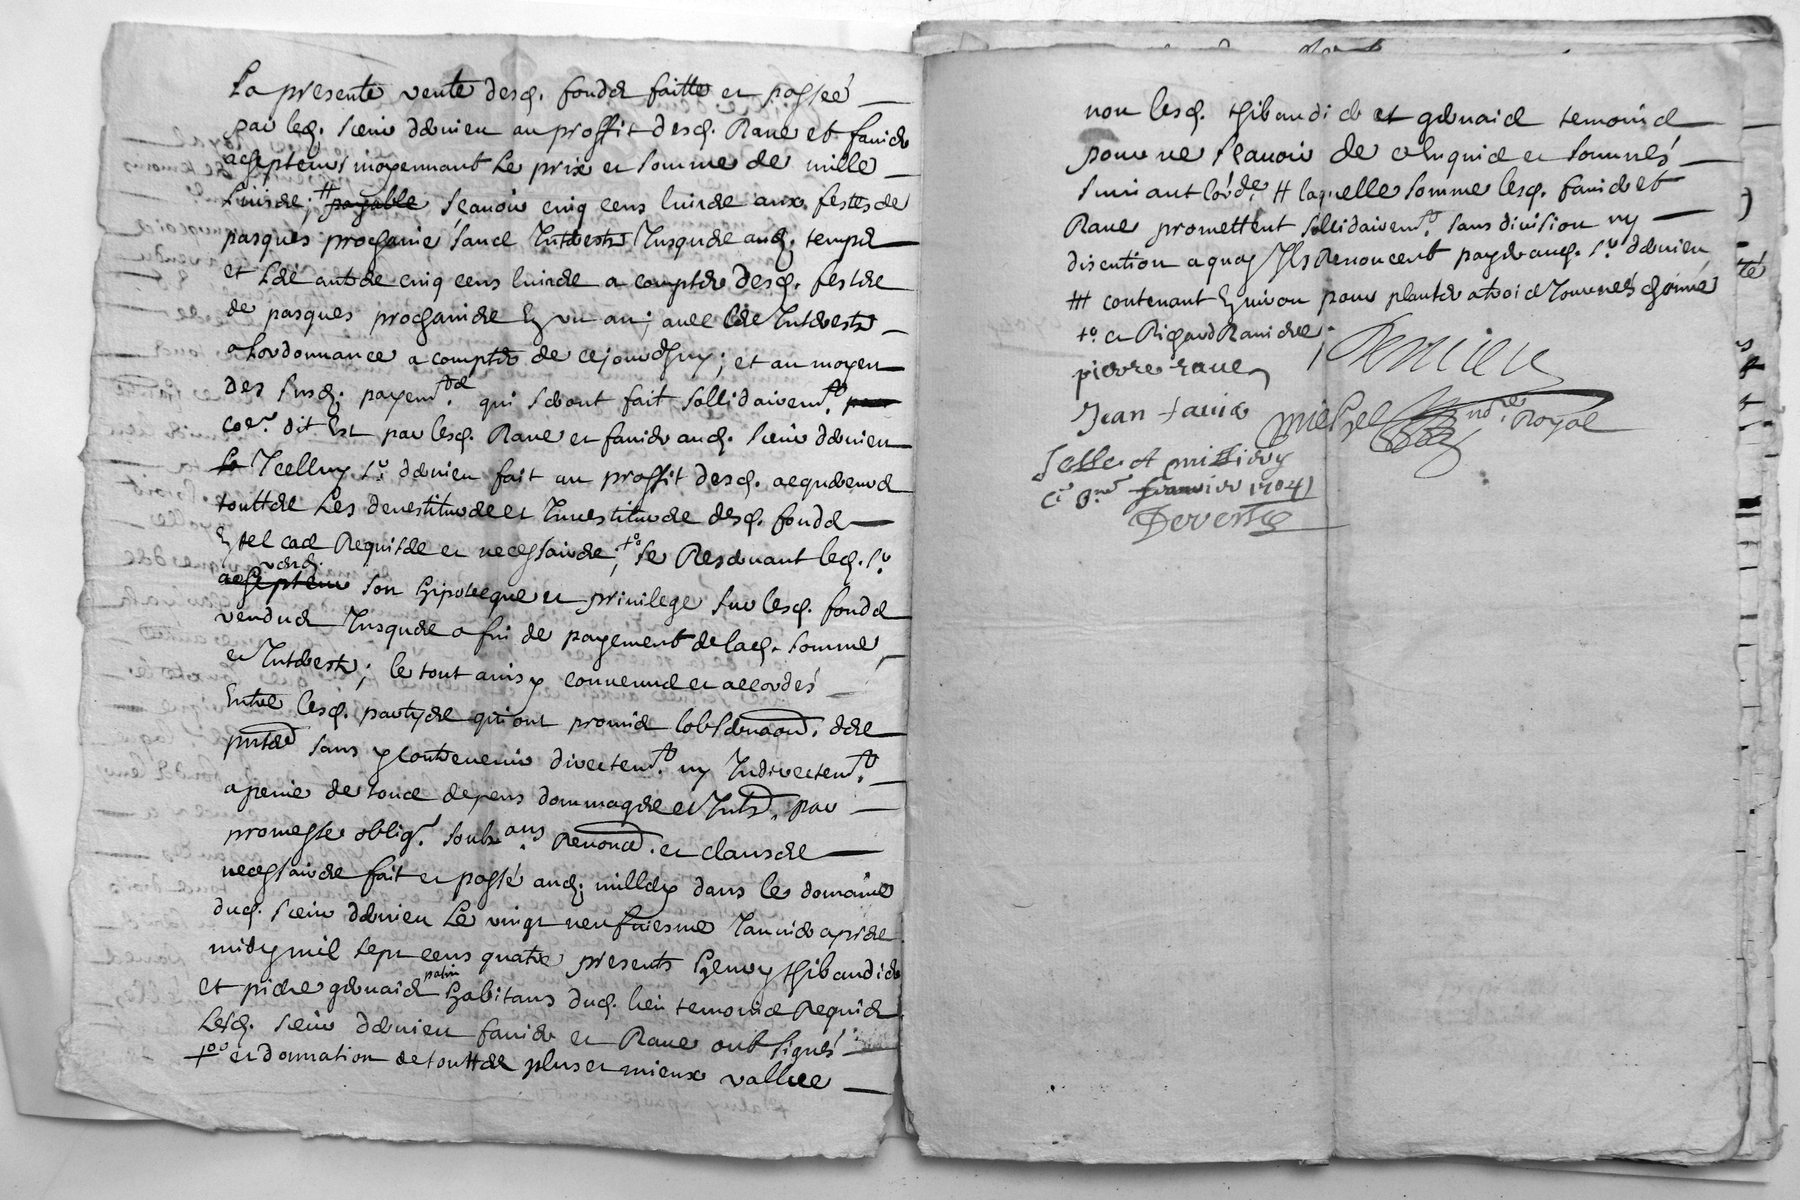 La presente vente desd. fonds faitte et passée
par led. sieur dernier au proffit desd. Raue et fauier
achepteurs moyennant le prix et somme de mille
Liures, # payable sçauoir cinq cens liures aux festes de
pasques prochaine sans Interests Jusques aud. temps
et les autres cinq cens liures a compter desd. festes
de pasques prochaines En un an; auec les Interests
a lordonnance a compter de cejourdhuy; et au moyen
des susd. payem.ts qui seront fait sollidairem.t
co.e dit Est par lesd. Raue et fauier aud. sieur dernier
Icelluy s.r dernier fait au proffit desd. acquereurs
touttes Les deuestitures et Inuestitures desd. fonds
En tel cas Requises et necessaires; +o se Reseruant led. s.r
vend.
achepteur son hipoteque et priuilege sur lesd. fonds
vendus Jusques a fin de payement de lad. somme
et Interests; le tout ainsy conuenus et accordés
Entre lesd. partyes qui ont promis lobseruaon. des
pntes sans y contreuenir directem.t ny Indirectem.t
a peine de tous depens dommages et Intts. par
promesse oblig. soubz.ons Renonc. et clauses
necessaires fait et passé aud. millery dans le domaine
dud. sieur dernier Le vingt neufuiesme Januier apres
midy mil sept cens quatre presents henry thibaudier
et pierre geruais habitans dud. lieu temoins Requis
Lesd. sieur dernier fauier et Raue ont signés
+oo et donnation de touttes plus et mieux vallue
non lesd. thibaudier et geruais temoins
pour ne sçauoir de ce enquis et sommés
suiuant lord.e # laquelle somme lesd. fauier et
Raue promettent sollidairem.t sans diuision ny
discution a quoy Ils Renoncent payer aud. s.r dernier
## contenant Enuiron pour planter a trois Journées
+o et
pierre raue
Dernier
Jean fauie
michel
nore Royal
Sellé A millery
ce 3me 1704